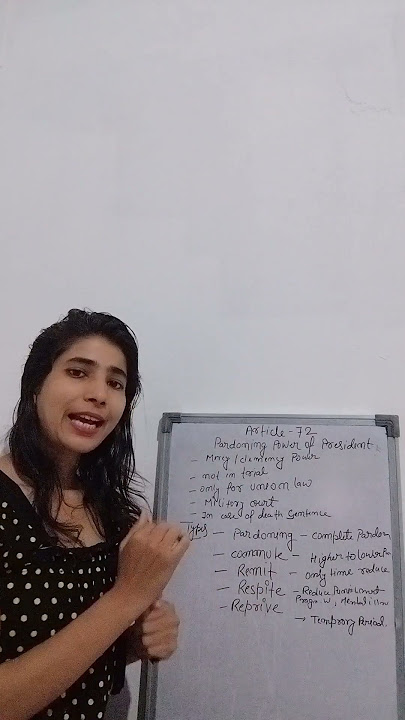 Article-72
Pardoning Power of President
- Mercy / clemency Power
- not in trial
- only for union law
- Military court
- In case of death Sentence
Types - Pardoning - complete Pardon
- commute - Higher to lower
- Remit - only time reduce
- Respite - Reduce
W, Mental illn
- Reprive
→ Temprory Period.